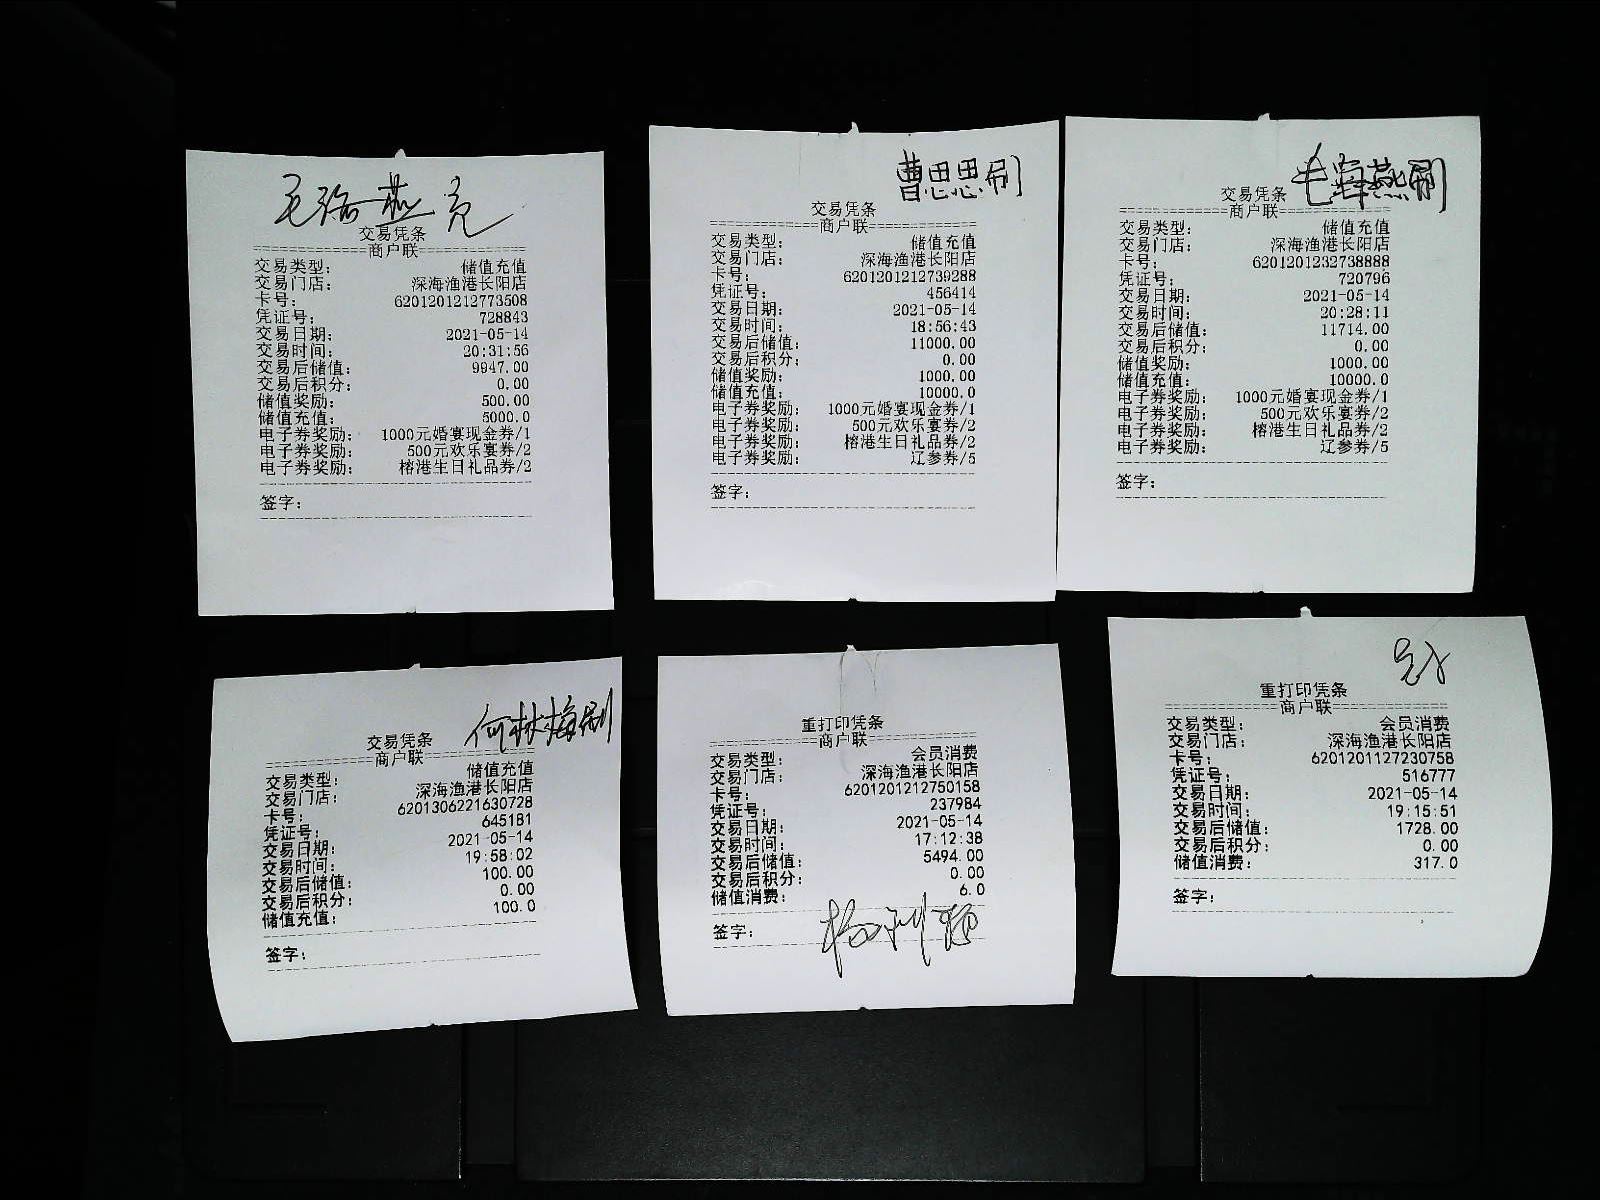 交易凭条
商户联
交易类型： 储值充值
交易门店： 深海渔港长阳店
卡号： 6201201212773508
凭证号： 728843
交易日期： 2021-05-14
交易时间： 20:31:56
交易后储值： 9947.00
交易后积分： 0.00
储值奖励： 500.00
储值充值： 5000.0
电子券奖励： 1000元婚宴现金券/1
电子券奖励： 500元欢乐宴券/2
电子券奖励： 榕港生日礼品券/2
签字：
曹思思刷
交易凭条
商户联
交易类型： 储值充值
交易门店： 深海渔港长阳店
卡号： 6201201212739288
凭证号： 456414
交易日期： 2021-05-14
交易时间： 18:56:43
交易后储值： 11000.00
交易后积分： 0.00
储值奖励： 1000.00
储值充值： 10000.0
电子券奖励： 1000元婚宴现金券/1
电子券奖励： 500元欢乐宴券/2
电子券奖励： 榕港生日礼品券/2
电子券奖励： 辽参券/5
签字：
毛海燕刷
交易凭条
商户联
交易类型： 储值充值
交易门店： 深海渔港长阳店
卡号： 6201201232738888
凭证号： 720796
交易日期： 2021-05-14
交易时间： 20:28:11
交易后储值： 11714.00
交易后积分： 0.00
储值奖励： 1000.00
储值充值： 10000.0
电子券奖励： 1000元婚宴现金券/1
电子券奖励： 500元欢乐宴券/2
电子券奖励： 榕港生日礼品券/2
电子券奖励： 辽参券/5
签字：
何林梅刷
交易凭条
商户联
交易类型： 储值充值
交易门店： 深海渔港长阳店
卡号： 6201306221630728
凭证号： 645181
交易日期： 2021-05-14
交易时间： 19:58:02
交易后储值： 100.00
交易后积分： 0.00
储值充值： 100.0
签字：
重打印凭条
商户联
交易类型： 会员消费
交易门店： 深海渔港长阳店
卡号： 6201201212750158
凭证号： 237984
交易日期： 2021-05-14
交易时间： 17:12:38
交易后储值： 5494.00
交易后积分： 0.00
储值消费： 6.0
签字：
重打印凭条
商户联
交易类型： 会员消费
交易门店： 深海渔港长阳店
卡号： 6201201127230758
凭证号： 516777
交易日期： 2021-05-14
交易时间： 19:15:51
交易后储值： 1728.00
交易后积分： 0.00
储值消费： 317.0
签字：